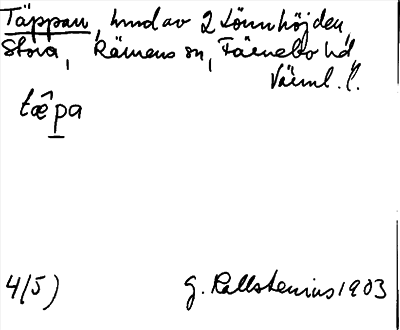 Täppan, hmd av 2 Lönnhöjden,
Stora, Rämens sn, Färnebo hd
Värml. l.
tæ̂pa
4(5) G. Kallstenius 1903